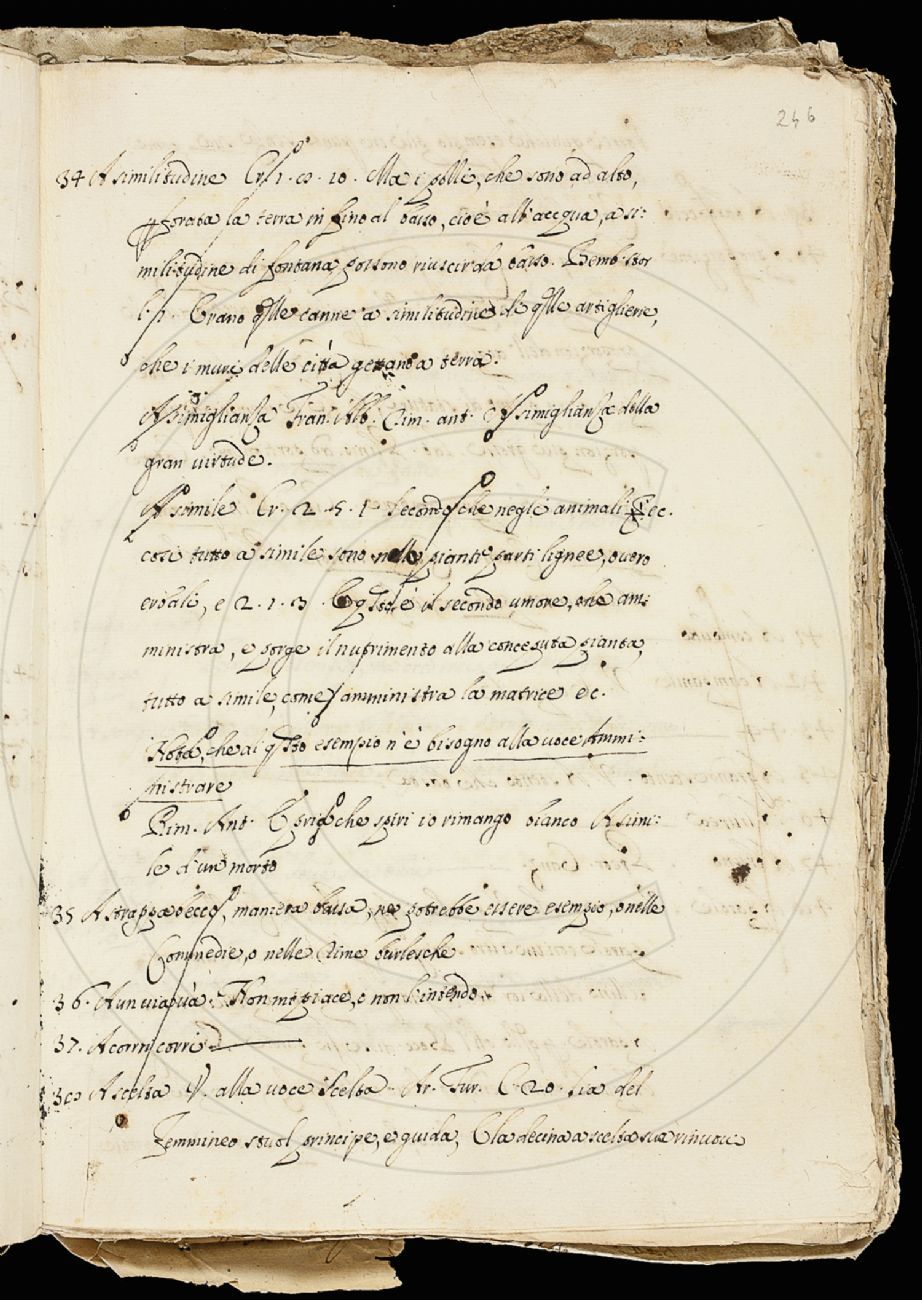 246
34 A similitudine Cr. 1. 8. 10. Ma i polli, che sono ad alto,
forata la terra in fino al basso, cioè all'acqua, a si:
militudine di fontana possono riuscir da basso. Bemb. stor
l. Erano q̃lle canne a similitudine di q̃lle artiglierie,
che i muri delle città gettano a terra.
Assimiglianza Fran. Alb. Rim. ant. E assimiglianza della
gran virtude.
A simile Cr. 2. 5. 1. Secondo che negli animali ec.
così tutto a simile sono nelle piante parti lignee, overo
erbali, e 2. 1. 3. E q̃sto è il secondo umore, che am:
ministra, e porge il nutrimento alla conceputa pianta,
tutto a simile, come amministra la matrice ec.
Nota, che di q̃sto esempio n'è bisogno alla voce Ammi:
nistrare
Rim. Ant. E prigo che spiri io rimango bianco A simi:
le d'un morto
35 A strappabecco, maniera bassa, ne potrebbe essere esempio, o nelle
Commedie, o nelle Rime burlesche
36. A un via via. Non mi piace, e non l'intendo.
37. A corri corri
38 A scelta V. alla voce Scelta. Ar. Fur. C. 20. Sia del
Femmineo stuol principe, e guida, E la decina a scelta sua rinuove